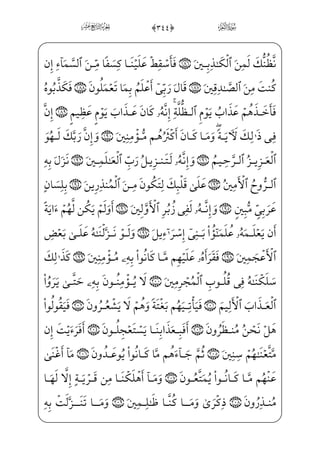 ﴿٣٤٤﴾
نَّظُنُّكَ لَمِنَ ٱلْكَـٰذِبِينَ ١٨٦ فَأَسْقِطْ عَلَيْنَا كِسَفًا مِّنَ ٱلسَّمَآءِ إِن
كُنتَ مِنَ ٱلصَّـٰدِقِينَ ١٨٧ قَالَ رَبِّىٓ أَعْلَمُ بِمَا تَعْمَلُونَ ١٨٨ فَكَذَّبُوهُ
فَأَخَذَهُمْ عَذَابُ يَوْمِ ٱلظُّلَّةِ ۚ إِنَّهُۥ كَانَ عَذَابَ يَوْمٍ عَظِيمٍ ١٨٩ إِنَّ
فِى ذَٰلِكَ لَـَٔايَةً ۖ وَمَا كَانَ أَكْثَرُهُم مُّؤْمِنِينَ ١٩٠ وَإِنَّ رَبَّكَ لَهُوَ
ٱلْعَزِيزُ ٱلرَّحِيمُ ١٩١ وَإِنَّهُۥ لَتَنزِيلُ رَبِّ ٱلْعَـٰلَمِينَ ١٩٢ نَزَلَ بِهِ
ٱلرُّوحُ ٱلْأَمِينُ ١٩٣ عَلَىٰ قَلْبِكَ لِتَكُونَ مِنَ ٱلْمُنذِرِينَ ١٩٤ بِلِسَانٍ
عَرَبِىٍّ مُّبِينٍ ١٩٥ وَإِنَّهُۥ لَفِى زُبُرِ ٱلْأَوَّلِينَ ١٩٦ أَوَلَمْ يَكُن لَّهُمْ ءَايَةً
أَن يَعْلَمَهُۥ عُلَمَـٰٓؤُا۟ بَنِىٓ إِسْرَٰٓءِيلَ ١٩٧ وَلَوْ نَزَّلْنَـٰهُ عَلَىٰ بَعْضِ
ٱلْأَعْجَمِينَ ١٩٨ فَقَرَأَهُۥ عَلَيْهِم مَّا كَانُوا۟ بِهِۦ مُؤْمِنِينَ ١٩٩ كَذَٰلِكَ
سَلَكْنَـٰهُ فِى قُلُوبِ ٱلْمُجْرِمِينَ ٢٠٠ لَا يُؤْمِنُونَ بِهِۦ حَتَّىٰ يَرَوُا۟
ٱلْعَذَابَ ٱلْأَلِيمَ ٢٠١ فَيَأْتِيَهُم بَغْتَةً وَهُمْ لَا يَشْعُرُونَ ٢٠٢ فَيَقُولُوا۟
هَلْ نَحْنُ مُنظَرُونَ ٢٠٣ أَفَبِعَذَابِنَا يَسْتَعْجِلُونَ ٢٠٤ أَفَرَءَيْتَ إِن
مَّتَّعْنَـٰهُمْ سِنِينَ ٢٠٥ ثُمَّ جَآءَهُم مَّا كَانُوا۟ يُوعَدُونَ ٢٠٦ مَآ أَغْنَىٰ
عَنْهُم مَّا كَانُوا۟ يُمَتَّعُونَ ٢٠٧ وَمَآ أَهْلَكْنَا مِن قَرْيَةٍ إِلَّا لَهَا
مُنذِرُونَ ٢٠٨ ذِكْرَىٰ وَمَا كُنَّا ظَـٰلِمِينَ ٢٠٩ وَمَا تَنَزَّلَتْ بِهِ